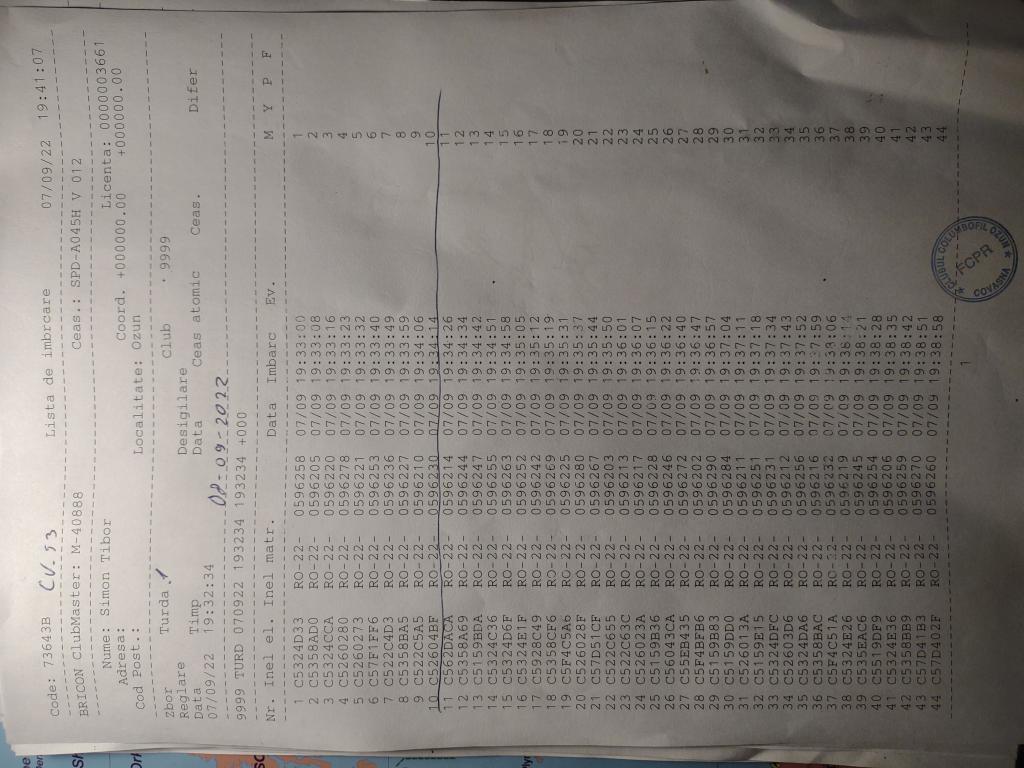 Code: 73643B CV. 53 Lista de imborcare 07/09/22 19:41:07
BRICON ClubMaster: M 40888 Ceas.: SPD-A045H V 012
Nume: Simon Tibor Licenta: 00000003661
Adresa: Coord. +000000.00 +000000.00
Cod Post.: Localitate: Ozun
Zbor Turda 1 Club . 9999
Reglare Desigilare
Data Timp Data Ceas atomic Ceas. Difer
07/09/22 19:32:34 08-09-2022
9999 TURD 070922 193234 193234 +000
Nr. Inel el. Inel matr. Data Imbarc Ev. M Y P F
1 C5324D33 RO-22- 0596258 07/09 19:33:00 1
2 C5358AD0 RO-22- 0596205 07/09 19:33:08 2
3 C5324CCA RO-22- 0596220 07/09 19:33:16 3
4 C5260280 RO-22- 0596278 07/09 19:33:23 4
5 C5260273 RO-22- 0596221 07/09 19:33:32 5
6 C57F1FF6 RO-22- 0596253 07/09 19:33:40 6
7 C522C4D3 RO-22- 0596236 07/09 19:33:49 7
8 C5358BA5 RO-22- 0596227 07/09 19:33:59 8
9 C522C5A5 RO-22- 0596210 07/09 19:34:06 9
10 C52604BF RO-22- 0596230 07/09 19:34:14 10
11 C562DACA RO-22- 0596214 07/09 19:34:26 11
12 C5358A69 RO-22- 0596244 07/09 19:34:34 12
13 C5159BDA RO-22- 0596247 07/09 19:34:42 13
14 C5324C36 RO-22- 0596255 07/09 19:34:51 14
15 C5324D6F RO-22- 0596263 07/09 19:34:58 15
16 C5324E1F RO-22- 0596249 07/09 19:35:05 16
17 C5928C49 RO-22- 0596242 07/09 19:35:12 17
18 C5358CF6 RO-22- 0596269 07/09 19:35:19 18
19 C5F4C5A6 RO-22- 0596225 07/09 19:35:31 19
20 C526028F RO-22- 0596280 07/09 19:35:37 20
21 C57D51CF RO-22- 0596267 07/09 19:35:44 21
22 C522C655 RO-22- 0596203 07/09 19:35:50 22
23 C522C63C RO-22- 0596213 07/09 19:36:01 23
24 C526023A RO-22- 0596217 07/09 19:36:07 24
25 C5159B36 RO-22- 0596228 07/09 19:36:15 25
26 C56043CA RO-22- 0596246 07/09 19:36:22 26
27 C55EB435 RO-22- 0596272 07/09 19:36:40 27
28 C5F4BFB6 RO-22- 0596202 07/09 19:36:47 28
29 C5145B83 RO-22- 0596290 07/09 19:36:57 29
30 C5159DD0 RO-22- 0596284 07/09 19:37:04 30
31 C526013A RO-22- 0596211 07/09 19:37:11 31
32 C5159E15 RO-22- 0596251 07/09 19:37:18 32
33 C5324DFC RO-22- 0596231 07/09 19:37:34 33
34 C52603D6 RO-22- 0596212 07/09 19:37:43 34
35 C5324DA6 RO-22- 0596256 07/09 19:37:52 35
36 C5358BAC RO-22- 0596216 07/09 19:37:59 36
37 C5F4C51A RO-22- 0596232 07/09 19:38:06 37
38 C5324E26 RO-22- 0596219 07/09 19:38:14 38
39 C535EAC6 RO-22- 0596245 07/09 19:38:21 39
40 C5519DF9 RO-22- 0596254 07/09 19:38:28 40
41 C5324E36 RO-22- 0596206 07/09 19:38:35 41
42 C5358BB9 RO-22- 0596259 07/09 19:38:42 42
43 C57D41B3 RO-22- 0596270 07/09 19:38:51 43
44 C57D402F RO-22- 0596260 07/09 19:38:58 44
1
CLUBUL COLUMBOFIL OZUN
FCPR
COVASNA